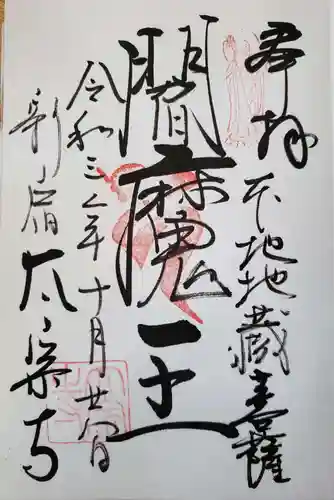 奉拝
本地地蔵菩薩
閻魔王
令和三年十月廿日
新宿 太宗寺